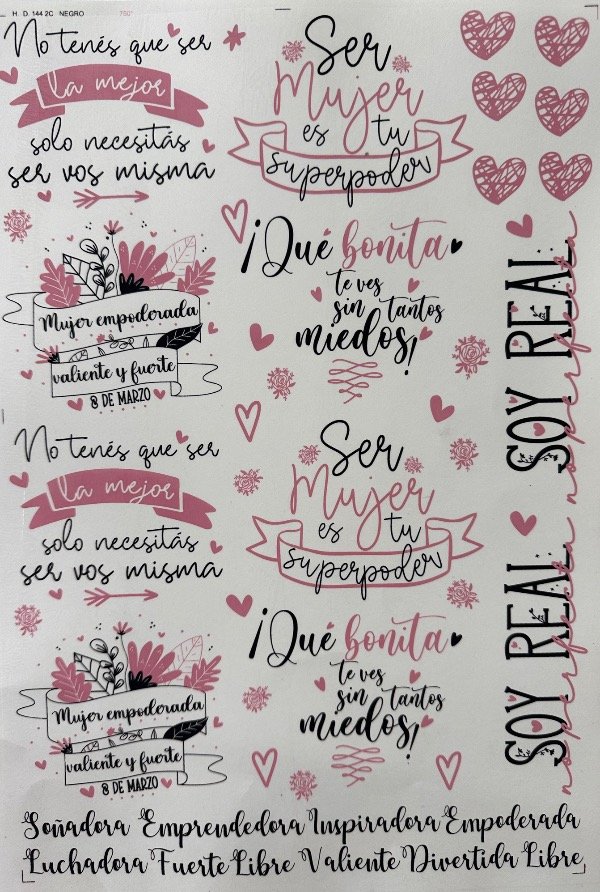 H. D. 144 2C NEGRO 750°
No tenés que ser
la mejor
solo necesitás
ser vos misma
Ser
Mujer
es tu
superpoder
Mujer empoderada
valiente y fuerte
8 DE MARZO
¡Qué bonita
te ves
sin tantos
miedos!
SOY REAL
no perfecta
No tenés que ser
la mejor
solo necesitás
ser vos misma
Ser
Mujer
es tu
superpoder
Mujer empoderada
valiente y fuerte
8 DE MARZO
¡Qué bonita
te ves
sin tantos
miedos!
SOY REAL
no perfecta
Soñadora Emprendedora Inspiradora Empoderada
Luchadora Fuerte Libre Valiente Divertida Libre